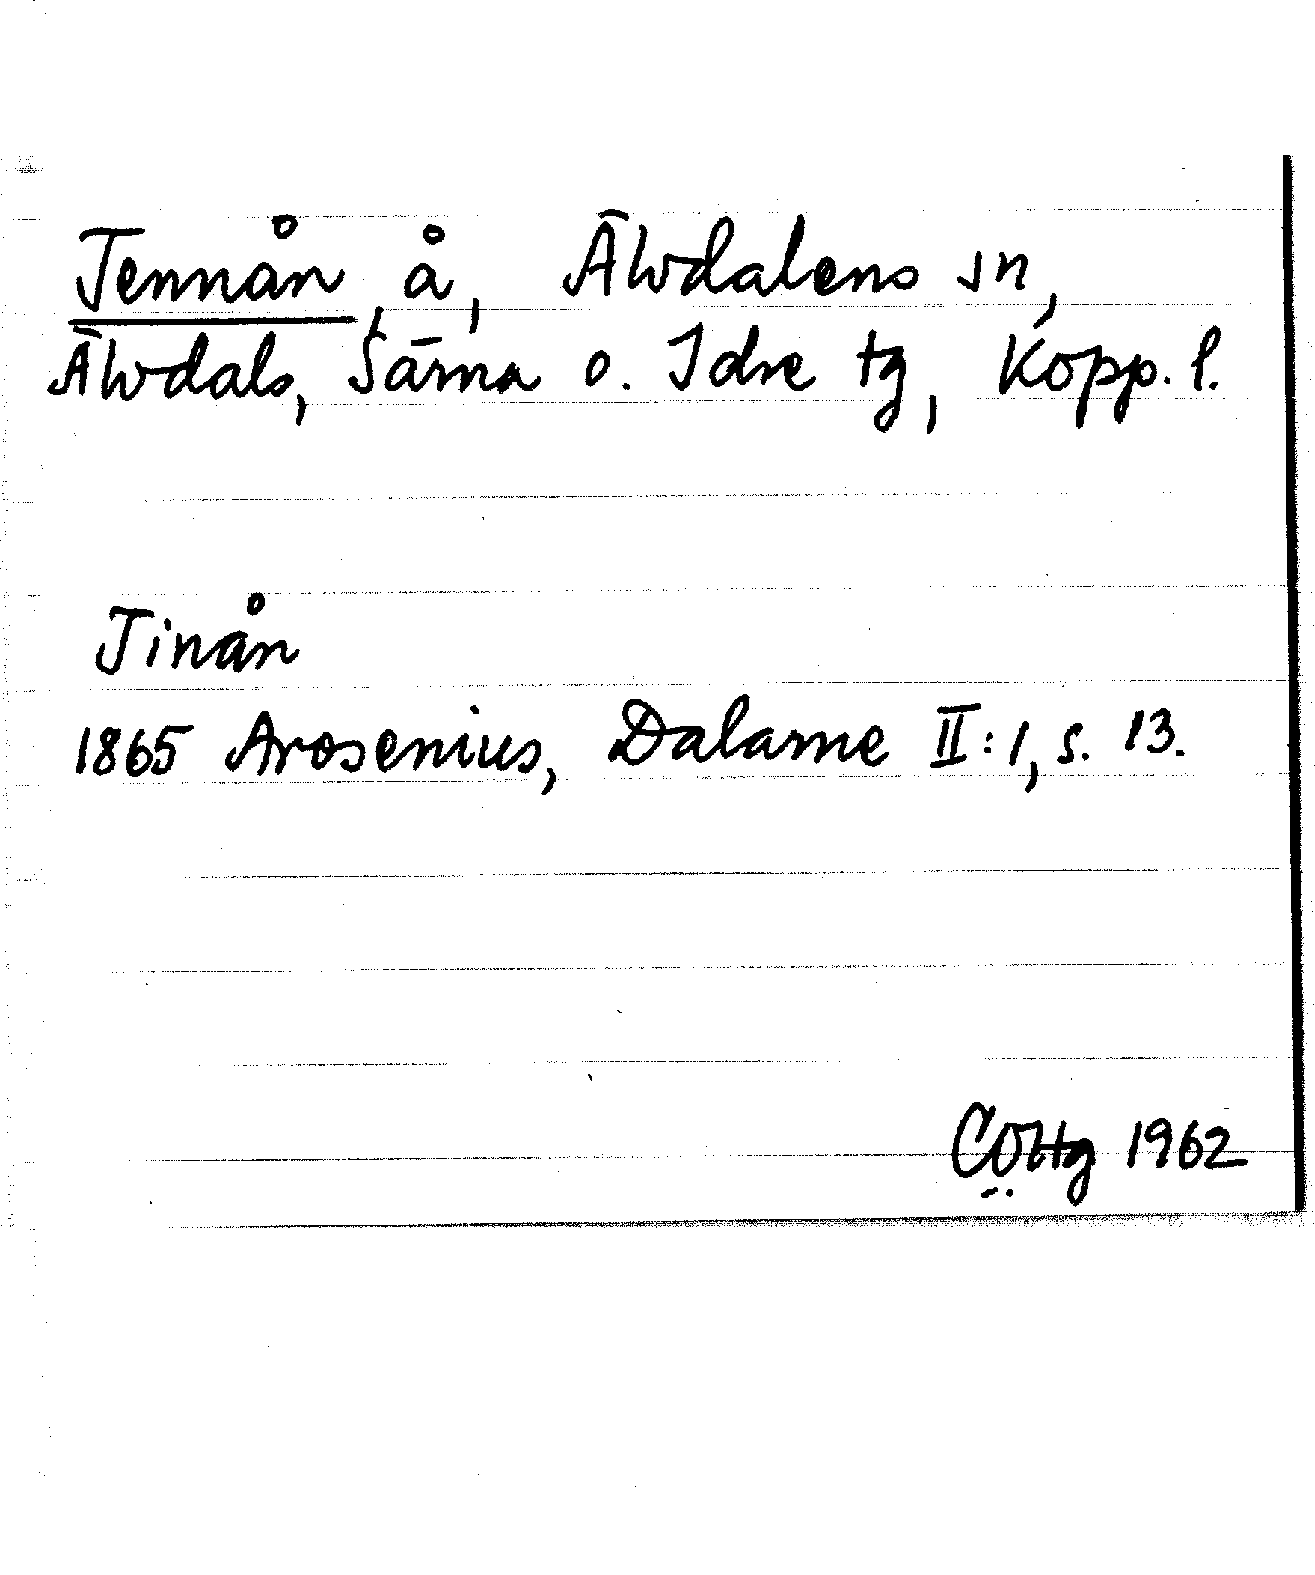 Tennån, å, Älvdalens sn,
Älvdals, Särna o. Idre tg, Kopp. l.
Tinån
1865 Arosenius, Dalarne II:1, s. 13.
1962